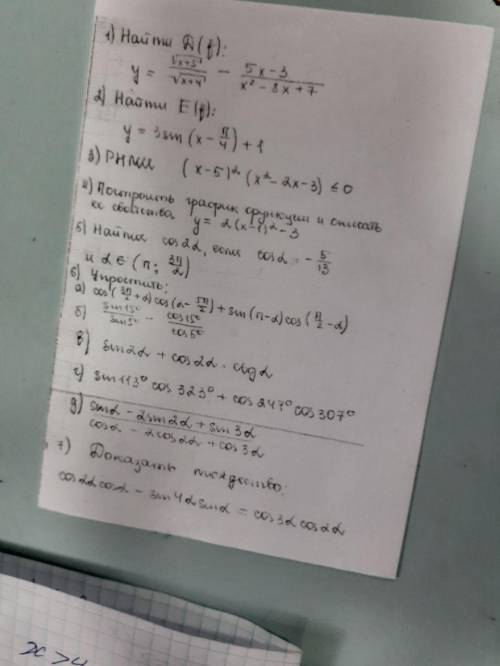 1) Найти D(f):
y = √(x+3) / √(x+4) − (5x−3) / (x² − 8x + 7)
2) Найти E(f):
y = 3sin(x − π/4) + 1
3) (x−5)² (x² − 2x − 3) ≤ 0
4) Построить график функции и описать
ее свойства y = 2(x−1)² − 3
5) Найти cos2α, если cosα = − 5/13
и α ∈ (π; 3π/2)
6) Упростить:
а) cos(3π/2 + α) cos(α − 5π/2) + sin(π−α) cos(π/2 − α)
б) sin15°/sin5° − cos15°/cos5°
в) sin2α + cos2α · ctgα
г) sin113° cos323° + cos247° cos307°
д) (sinα − 2sin2α + sin3α) / (cosα − 2cos2α + cos3α)
7) Доказать тождество:
cos2α cosα − sin4α sinα = cos3α cos2α
x > 4